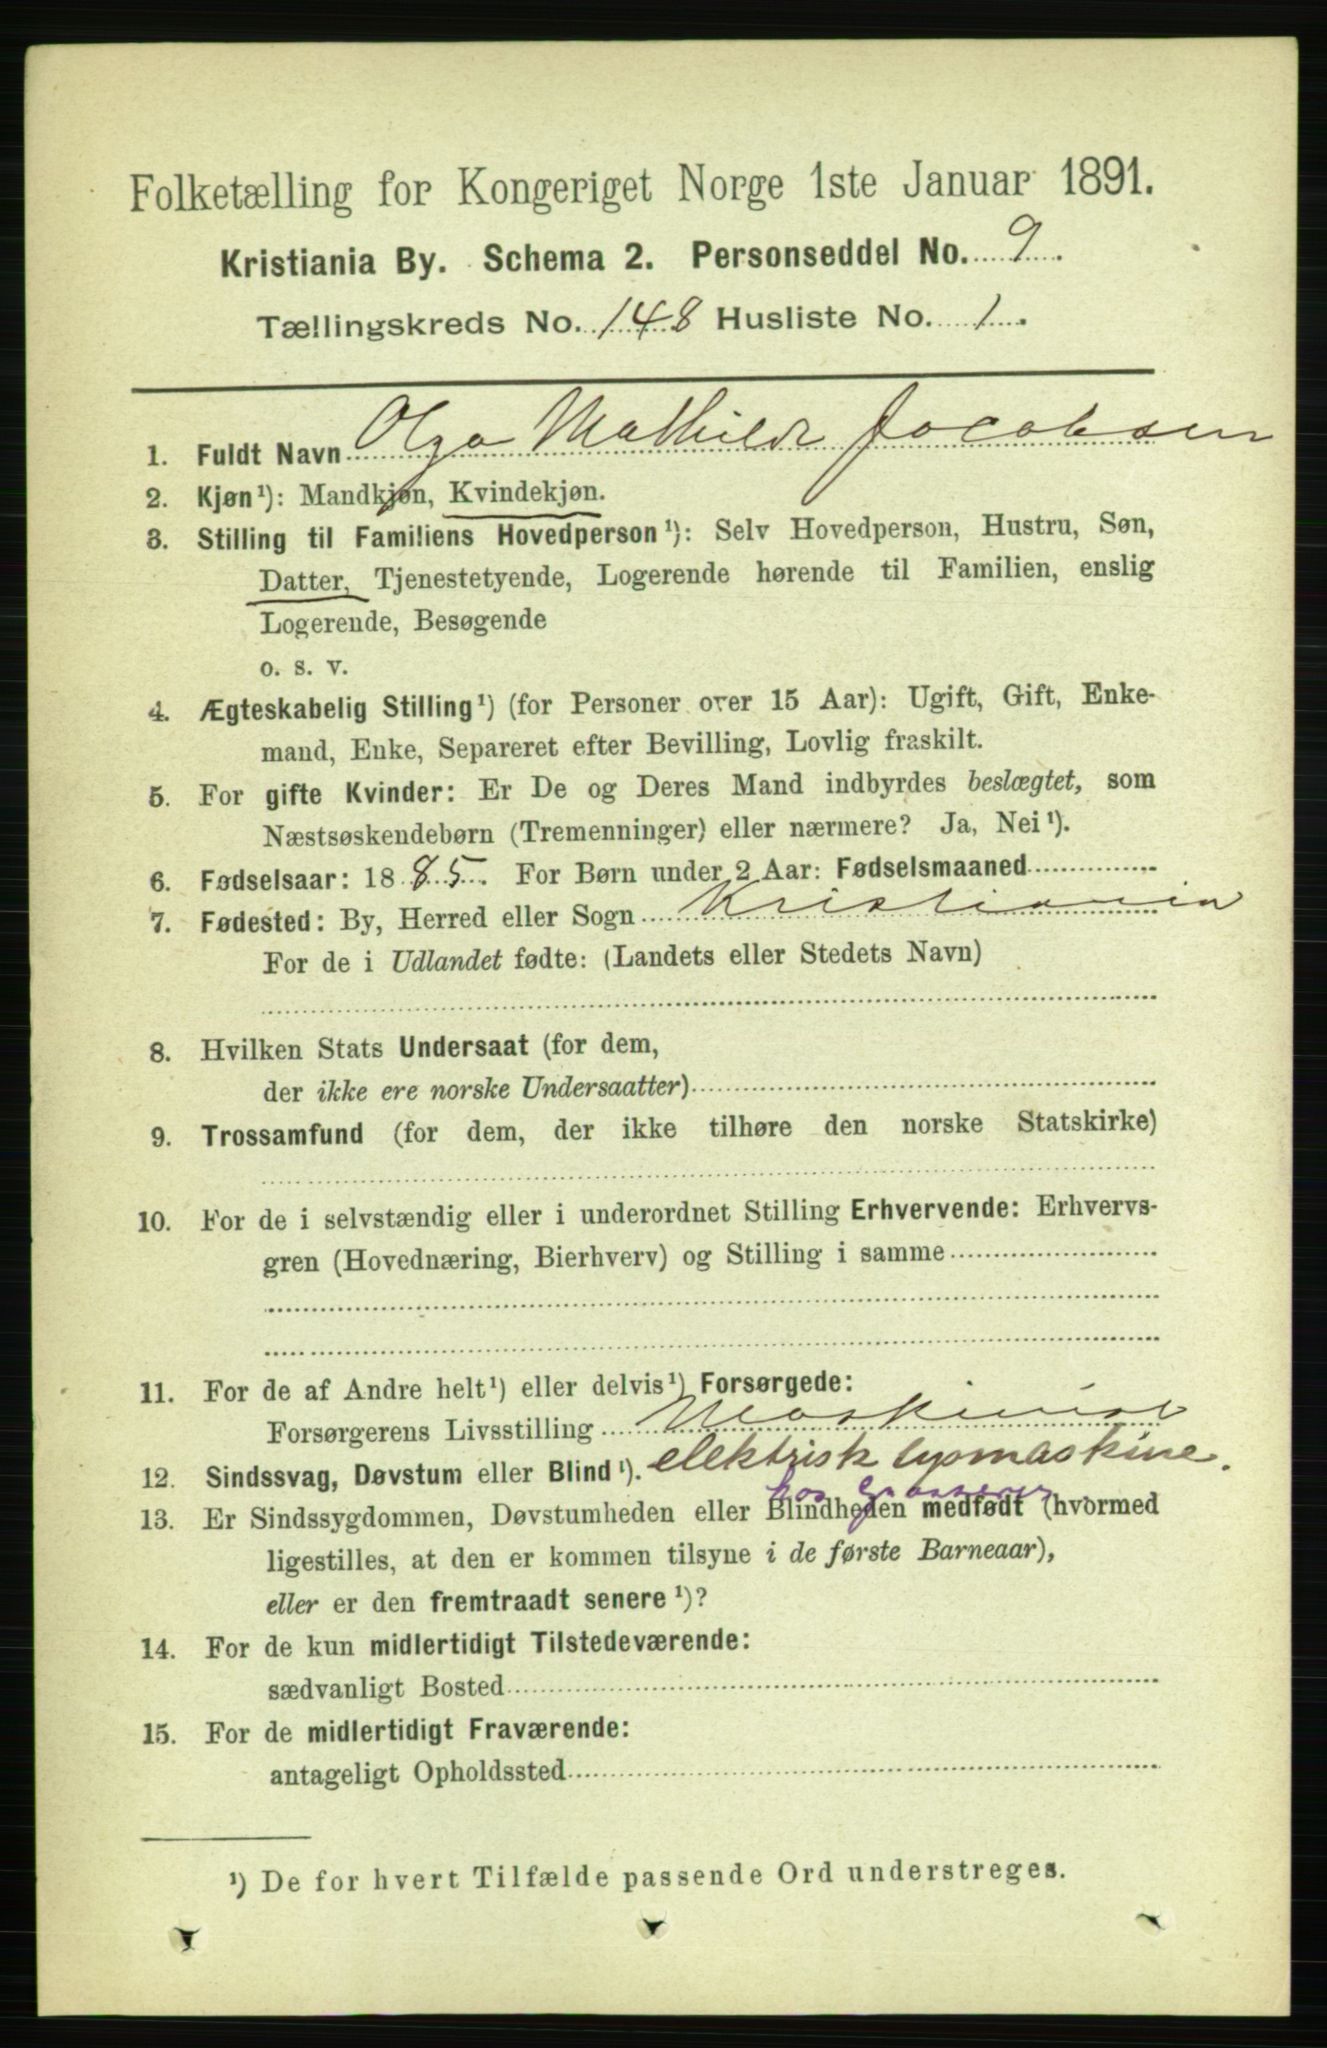 Folketælling for Kongeriget Norge 1ste Januar 1891.
Kristiania By. Schema 2. Personseddel No. 9.
Tællingskreds No. 148 Husliste No. 1.
1. Fuldt Navn Olga Mathilde Jacobsen
2. Kjøn¹): Mandkjøn, Kvindekjøn.
3. Stilling til Familiens Hovedperson¹): Selv Hovedperson, Hustru, Søn,
Datter, Tjenestetyende, Logerende hørende til Familien, enslig
Logerende, Besøgende
o. s. v.
4. Ægteskabelig Stilling¹) (for Personer over 15 Aar): Ugift, Gift, Enke-
mand, Enke, Separeret efter Bevilling, Lovlig fraskilt.
5. For gifte Kvinder: Er De og Deres Mand indbyrdes beslægtet, som
Næstsøskendebørn (Tremenninger) eller nærmere? Ja, Nei¹).
6. Fødselsaar: 1885. For Børn under 2 Aar: Fødselsmaaned
7. Fødested: By, Herred eller Sogn Kristiania
For de i Udlandet fødte: (Landets eller Stedets Navn)
8. Hvilken Stats Undersaat (for dem,
der ikke ere norske Undersaatter)
9. Trossamfund (for dem, der ikke tilhøre den norske Statskirke)
10. For de i selvstændig eller i underordnet Stilling Erhvervende: Erhvervs-
gren (Hovednæring, Bierhverv) og Stilling i samme
11. For de af Andre helt¹) eller delvis¹) Forsørgede:
Forsørgerens Livsstilling Maskinist
12. Sindssvag, Døvstum eller Blind¹). elektrisk lysmaskine.
hos
13. Er Sindssygdommen, Døvstumheden eller Blindheden medfødt (hvormed
ligestilles, at den er kommen tilsyne i de første Barneaar),
eller er den fremtraadt senere¹)?
14. For de kun midlertidigt Tilstedeværende:
sædvanligt Bosted
15. For de midlertidigt Fraværende:
antageligt Opholdssted
¹) De for hvert Tilfælde passende Ord understreges.